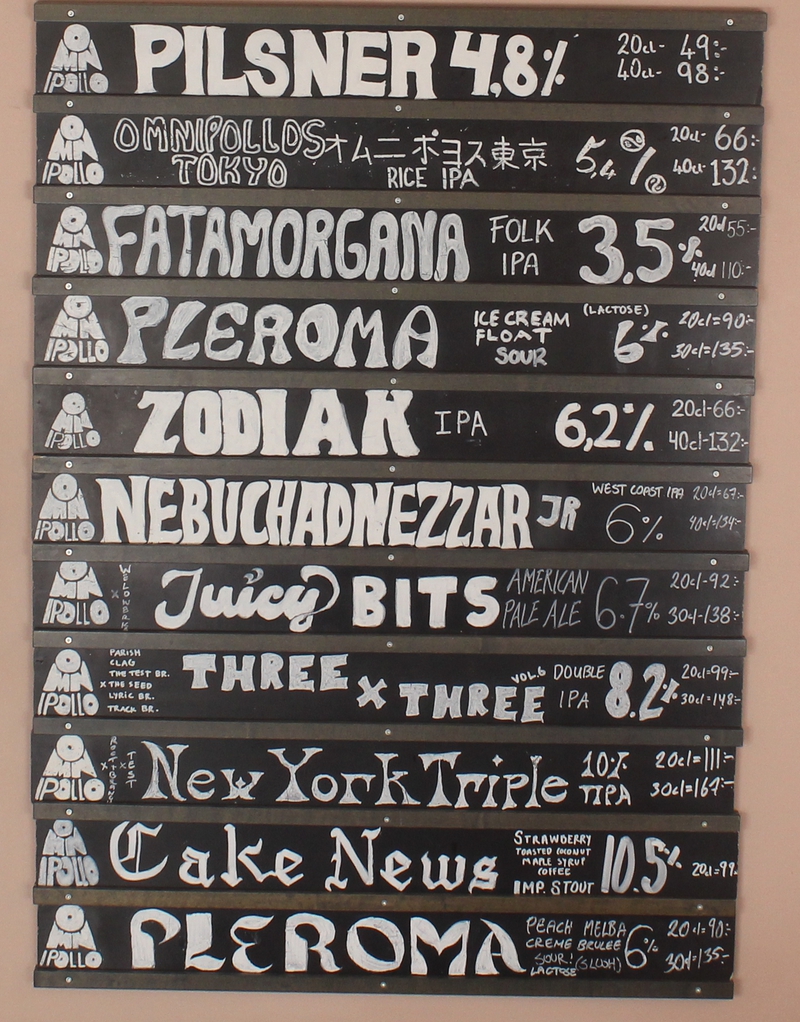 OMNIPOLLO PILSNER 4,8% 20cl- 49:-
40cl- 98:-
OMNIPOLLO OMNIPOLLOS オムニポヨス東京 5,4% 20cl- 66:-
TOKYO RICE IPA 40cl- 132:-
OMNIPOLLO FATAMORGANA FOLK IPA 3.5% 20cl 55:-
40cl 110:-
OMNIPOLLO PLEROMA ICE CREAM (LACTOSE) 20cl=90:-
FLOAT 6% 30cl=135:-
SOUR
OMNIPOLLO ZODIAK IPA 6,2% 20cl-66:-
40cl-132:-
OMNIPOLLO NEBUCHADNEZZAR JR WEST COAST IPA 20cl=67:-
6% 40cl=134:-
OMNIPOLLO x Juicy BITS AMERICAN 6.7% 20cl-92:-
PALE ALE 30cl-138:-
OMNIPOLLO PARISH
CLAG
THE TEST BR.
x THE SEED
LYRIC BR.
TRACK BR.
THREE x THREE VOL.6 DOUBLE 8.2% 20cl=99:-
IPA 30cl=148:-
OMNIPOLLO x x TEST New York Triple 10% 20cl=111:-
TIPA 30cl=167:-
OMNIPOLLO Cake News STRAWBERRY 10.5% 20cl=99:-
TOASTED COCONUT
MAPLE SYRUP
COFFEE
IMP. STOUT
OMNIPOLLO PLEROMA PEACH MELBA 6% 20cl=90:-
CREME BRULEE 30cl=135:-
SOUR! (SLUSH)
LACTOSE